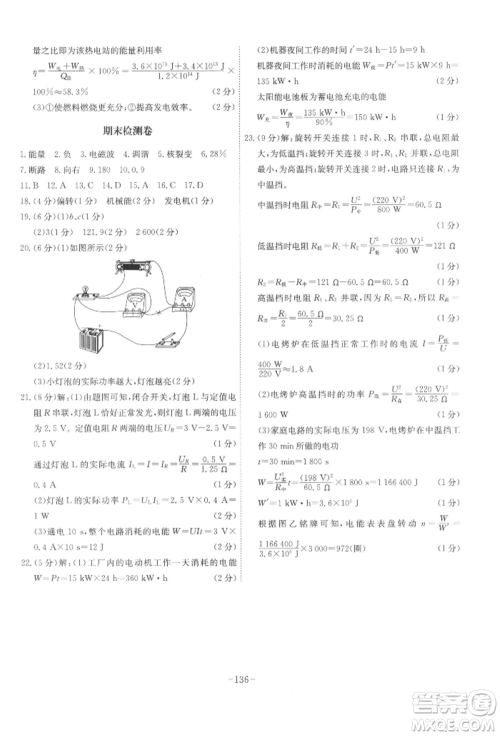 量之比即为该热电站的能量利用率
η=(W电+W热)/Q热×100%=(3.6×10¹³J+3.4×10¹³J)/(1.2×10¹⁴J)×
100%≈58.3% (2分)
(3)①使燃料燃烧更充分;②提高发电效率。 (2分)
期末检测卷
1.能量 2.负 3.电磁波 4.调谐 5.核裂变 6.28%
7.断路 8.右 9.180 10.0,9
11.B 12.A 13.D 14.A 15.A 16.C 17.C
18.(4分)偏转(1分) 机械能(2分) 发电机(1分)
19.(6分)(1)b,c(1分)
(2)3(1分) 121.9(2分) 2600(2分)
20.(6分)(1)如图所示(2分)
A
V
(2)1.52(2分)
(3)小灯泡的实际功率越大,灯泡越亮(2分)
21.(6分)解:(1)由题图可知,闭合开关,灯泡L与定值电
阻R串联,灯泡L恰好正常发光,则灯泡L两端的电压
为2.5V,定值电阻R两端的电压U_R=3V-2.5V=
0.5V (1分)
通过灯泡L的实际电流I_L=I=U_R/R=0.5V/1.25Ω=0.4A (1分)
(2)灯泡L的实际功率P_L=U_L I_L=2.5V×0.4A=
1W (2分)
(3)通电10s,整个电路消耗的电能W=UIt=3V×
0.4A×10s=12J (2分)
22.(5分)解:(1)工厂内的电动机工作一天消耗的电能
W=Pt=15kW×24h=360kW·h (2分)
(2)机器夜间工作的时间t′=24h-15h=9h
机器夜间消耗的电能W夜=Pt′=15kW×9h=
135kW·h (2分)
太阳能电池板为蓄电池充电的电能
W充=W夜/η=135kW·h/90%=150kW·h (1分)
23.(9分)解:旋转开关连接1时R₁、R₂串联,电烤炉为
低温挡;旋转开关连接2时,R₁、R₂并联,电烤炉
为高温挡;旋转开关连接3时,电路只连接R₁,为
中温挡。
中温挡时电阻R中=R₁=U²/P中=(220V)²/800W=60.5Ω
(1分)
低温挡时电阻R低=R₁+R₂=U²/P低=(220V)²/400W=121Ω
(1分)
R₂=R低-R₁=121Ω-60.5Ω=60.5Ω (1分)
高温挡时电阻R₁、R₂并联,且R₁=R₂
R高=R₁/2=60.5Ω/2=30.25Ω (1分)
(1)电烤炉在低温挡正常工作时的电流I=P低/U=
400W/220V≈1.8A (1分)
(2)电烤炉高温挡的电功率P高=U²/R高=(220V)²/30.25Ω=
1600W (1分)
(3)家庭电路的实际电压为198V,电烤炉以高温挡工
作30min所做的电功
t=30min=1800s
W=U实²/R高 t=(198V)²/30.25Ω×1800s=1166400J (1分)
W′=1kW·h=3.6×10⁶J (1分)
根据图乙铭牌可知,在此期间电能表表盘转动n=W/W′=
1166400J/3.6×10⁶J×3000=972(圈) (1分)
-136-